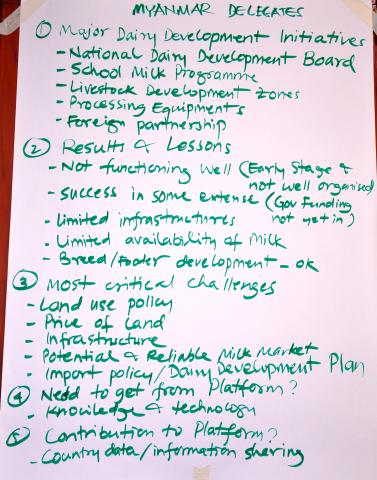 MYANMAR DELEGATES
① Major Dairy Development Initiatives
- National Dairy Development Board
- School Milk Programme
- Livestock Development Zones
- Processing Equipments
- Foreign partnership
② Results & Lessons
- Not functioning well (Early Stage &
not well organised)
- success in some extense (Gov Funding
not yet in)
- Limited infrastructures
- Limited availability of Milk
- Breed/Fooder development - ok
③ Most critical challenges
- Land use policy
- Price of Land
- Infrastructure
- Potential & Reliable Milk Market
- Import policy/Dairy Development Plan
④ Need to get from Platform?
- Knowledge & technology
⑤ Contribution to Platform?
- Country data/information sharing